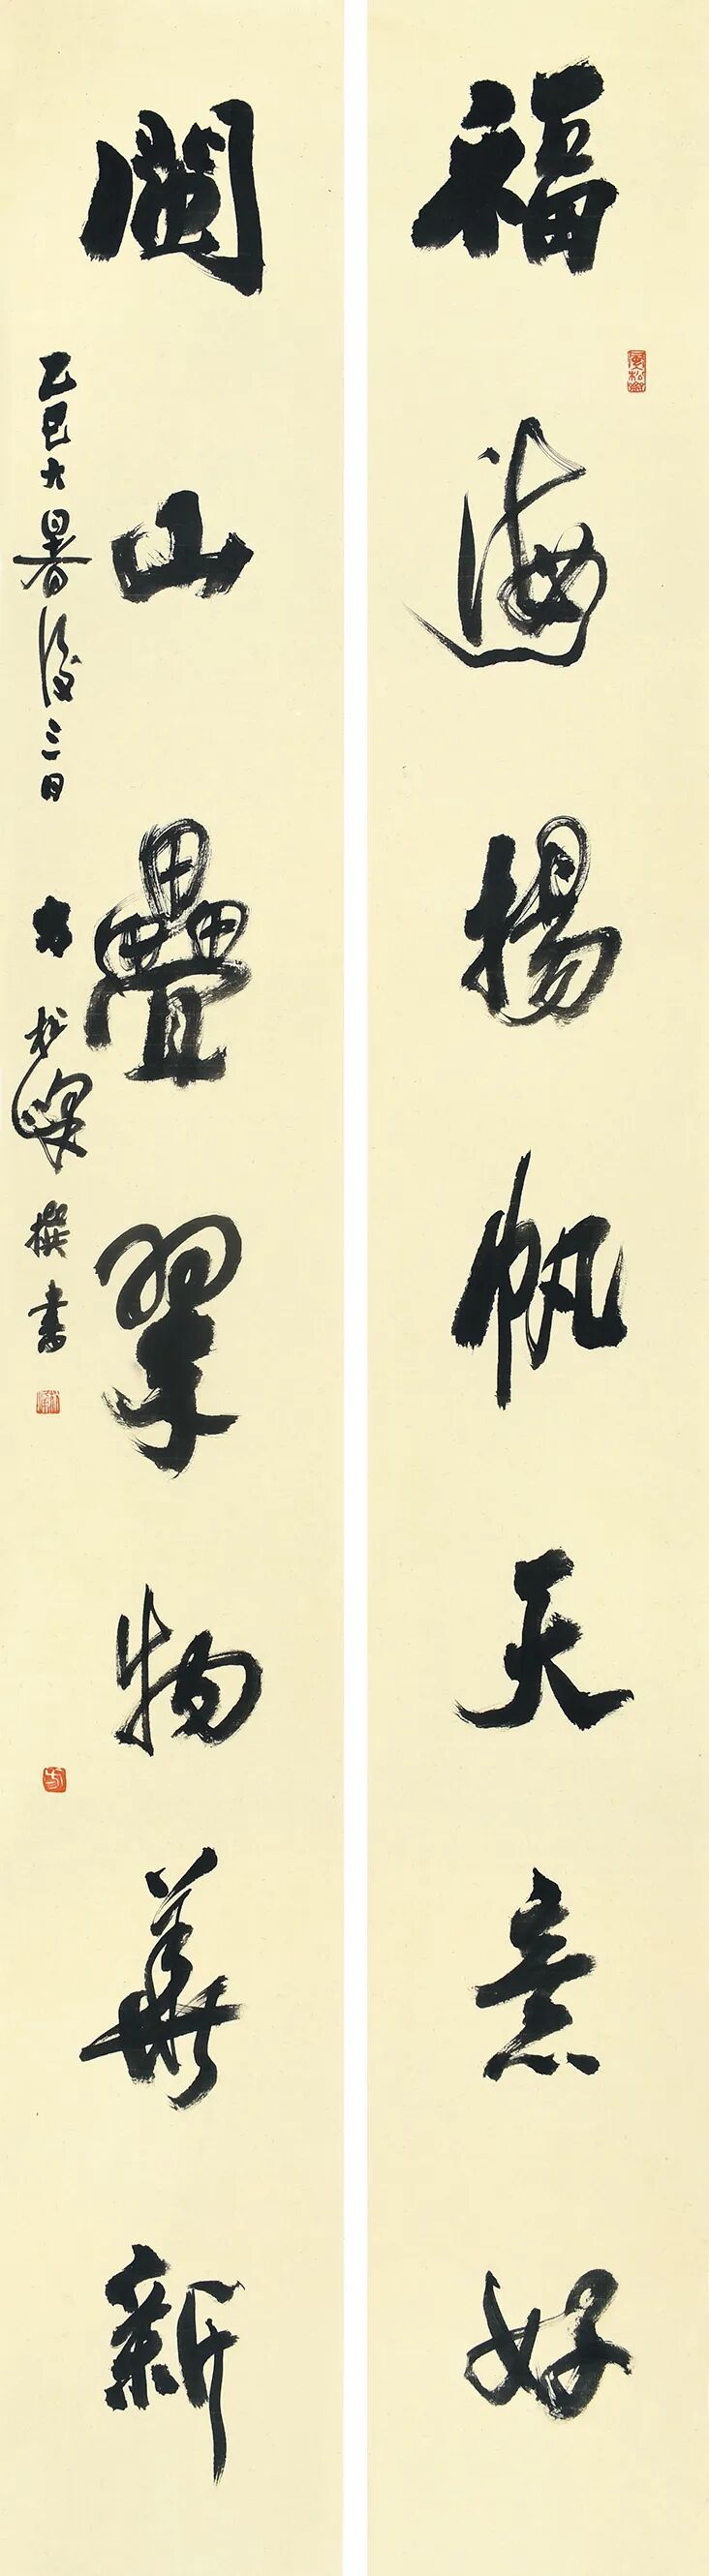 福海揚帆天意好
閩山疊翠物華新
乙巳大暑後三日
撰書